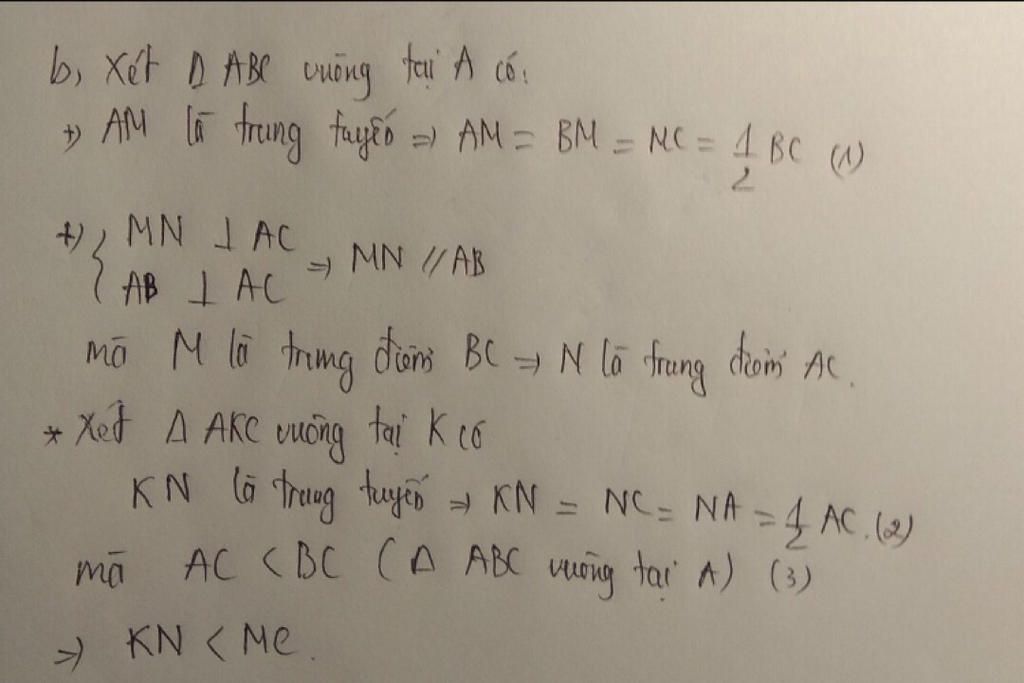 b, Xét Δ ABC vuông tại A có:
+) AM là trung tuyến => AM = BM = MC = 1/2 BC (1)
+) { MN ⊥ AC
AB ⊥ AC => MN // AB
mà M là trung điểm BC => N là trung điểm AC.
* Xét Δ AKC vuông tại K có
KN là trung tuyến => KN = NC = NA = 1/2 AC. (2)
mà AC < BC (Δ ABC vuông tại A) (3)
=> KN < MC.